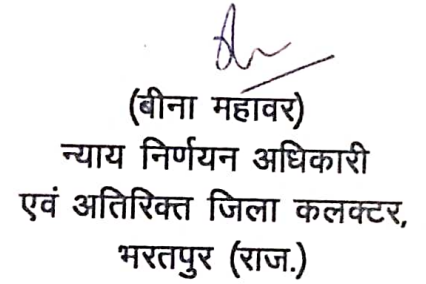 (बीना महावर)
न्याय निर्णयन अधिकारी
एवं अतिरिक्त जिला कलक्टर,
भरतपुर (राज.)